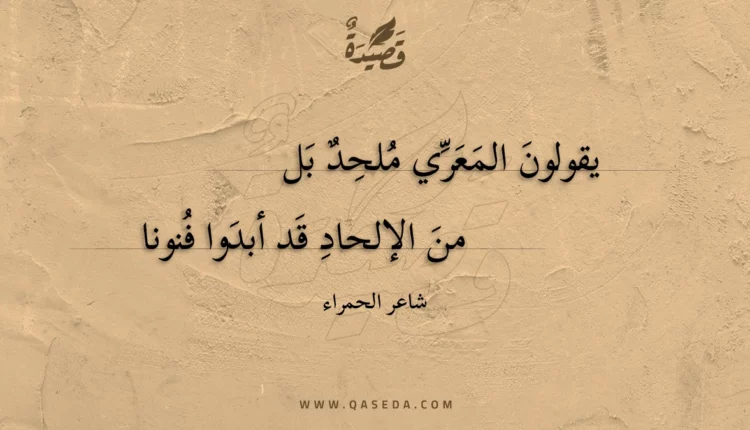 قَصِيدَةٌ
يقولونَ المَعَرِّي مُلحِدٌ بَل
منَ الإلحادِ قَد أبدَوا فُنونا
شاعر الحمراء
WWW.QASEDA.COM